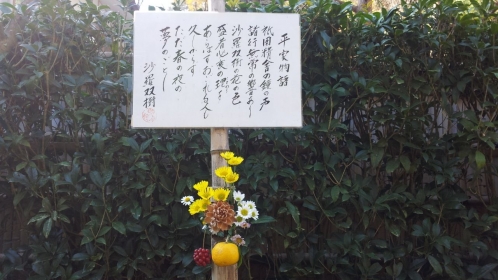 平家物語
祇園精舎の鐘の声
諸行無常の響あり
沙羅双樹の花の色
盛者必衰の理を
あらはすおごれる人も
久しからず
たた春の夜の
夢のごとし
沙羅双樹